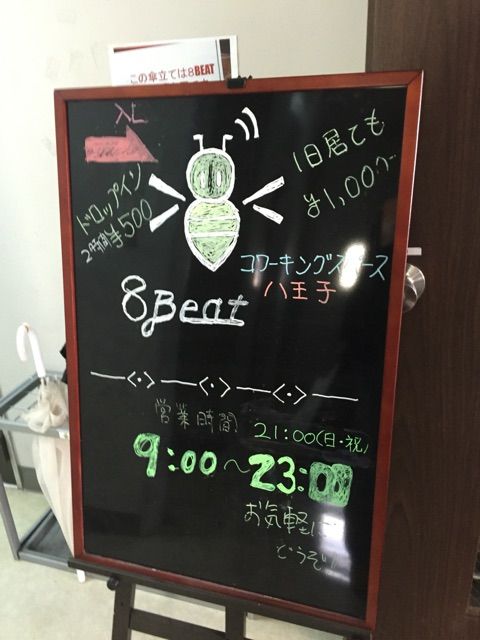 この傘立ては8BEAT
入口
ドロップイン
2時間¥500
1日居ても
¥1,000
コワーキングスペース
八王子
8Beat
営業時間
21:00(日・祝)
9:00~23:00
お気軽に
どうぞ!